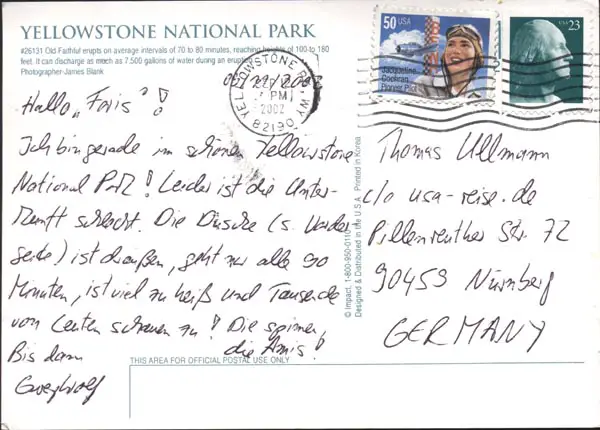 YELLOWSTONE NATIONAL PARK
#26131 Old Faithful erupts on average intervals of 70 to 80 minutes, reaching heights of 100 to 180
feet. It can discharge as much as 7,500 gallons of water during an eruption.
Photographer-James Blank
Hallo „Foris“!
Ich bin gerade im schönen Yellowstone
National Park! Leider ist die Unter-
kunft schlecht. Die Dusche (s. Vorder-
seite) ist draußen, geht nur alle 90
Minuten, ist viel zu heiß und Tausende
von Leuten schauen zu! Die spinnen,
die Amis!
Bis dann
Greywolf
YELLOWSTONE
WY
PM
2002
82190
50 USA
Jacqueline
Cochran
Pioneer Pilot
USA 23
Thomas Ullmann
c/o usa-reise.de
Pillenreuther Str. 72
90459 Nürnberg
GERMANY
© Impact, 1-800-950-0110
Designed & Distributed in the U.S.A. Printed in Korea
THIS AREA FOR OFFICIAL POSTAL USE ONLY